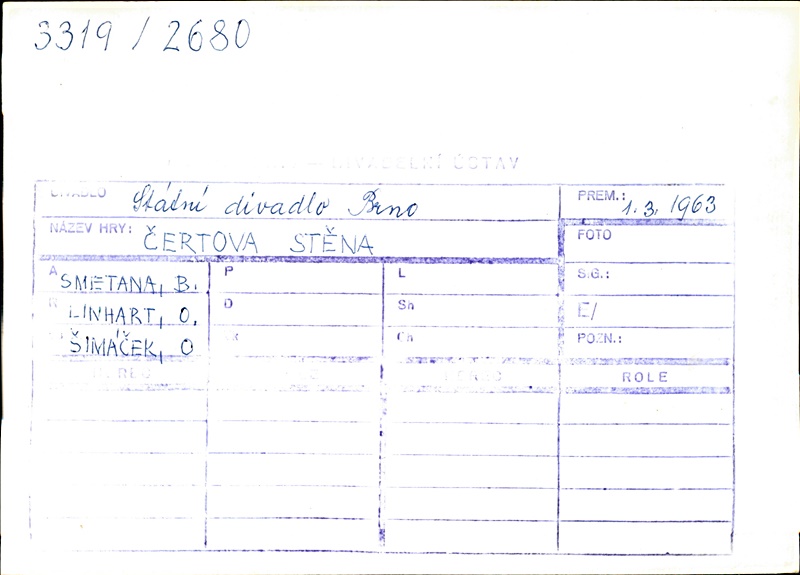 3319 / 2680
DIVADELNÍ ÚSTAV
DIVADLO Státní divadlo Brno PREM.: 1. 3. 1963
NÁZEV HRY: ČERTOVA STĚNA FOTO
A SMETANA, B. P L S.G.:
R LINHART, O. D Sh E/
ŠIMÁČEK, O Ch POZN.:
HEREC ROLE